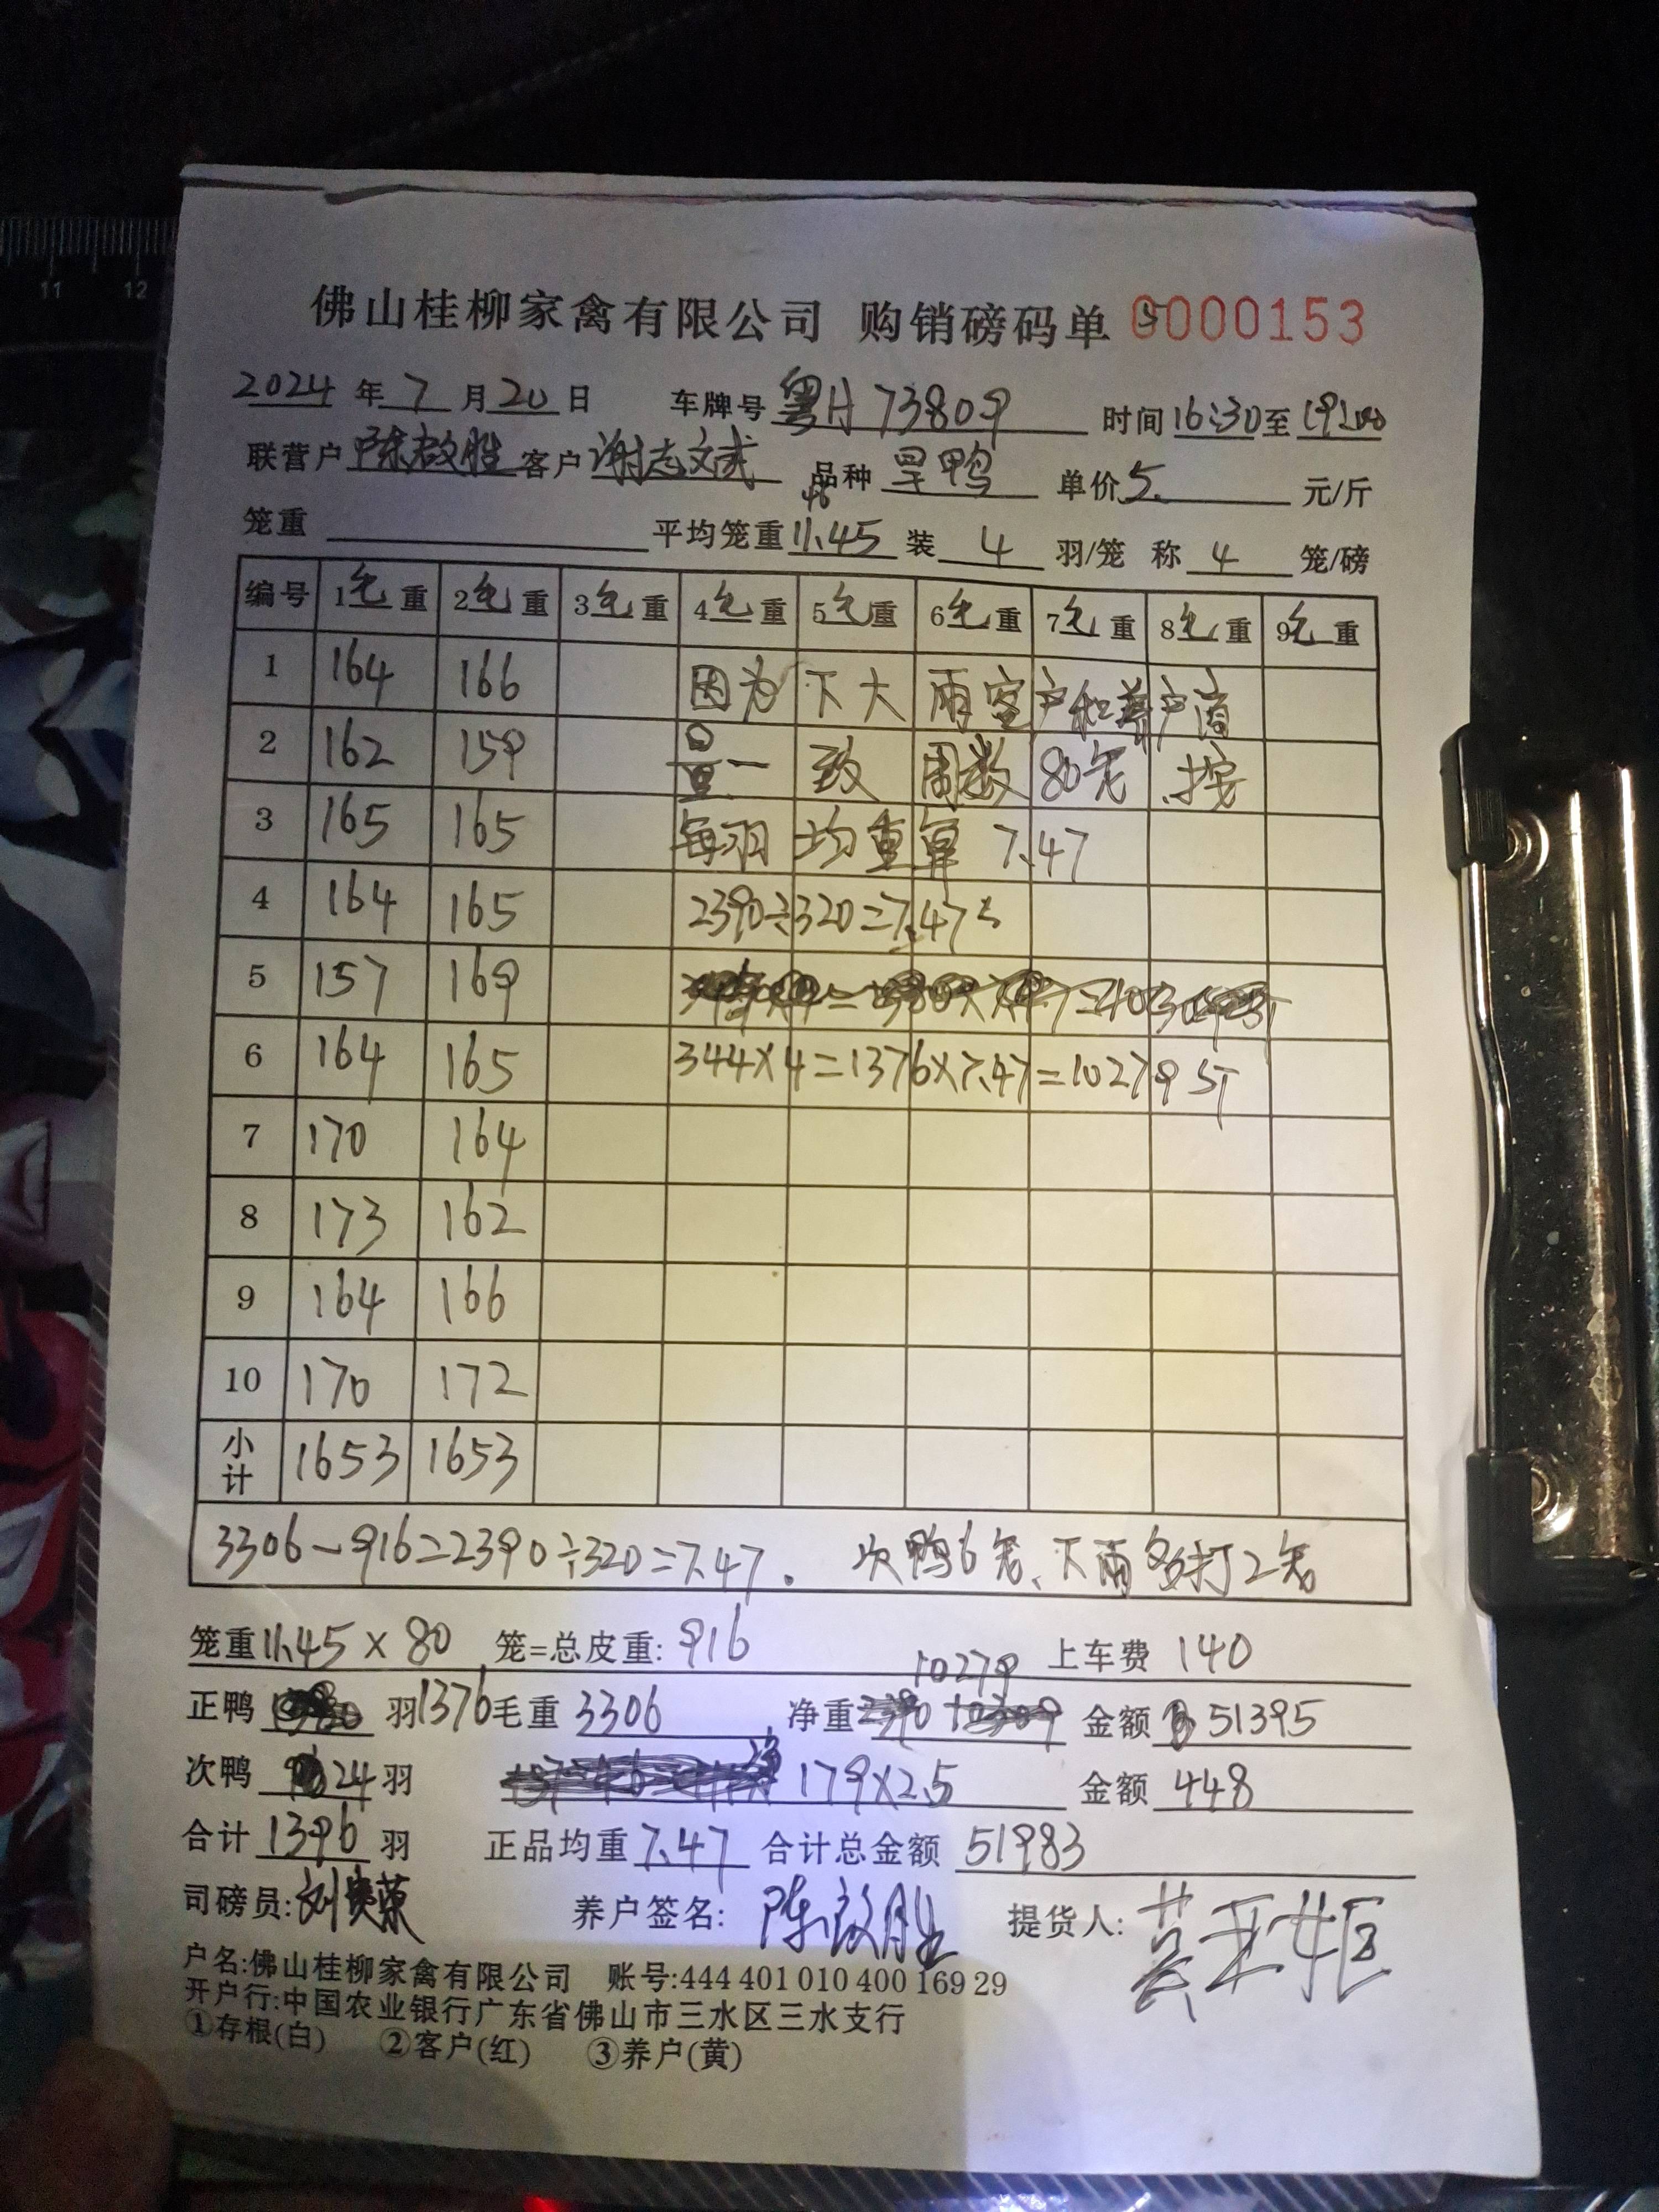 11 12
佛山桂柳家禽有限公司 购销磅码单 0000153
2024年7月20日 车牌号粤H73809 时间16:30至19:00
联营户陈啟胜 客户谢志文武 品种旱鸭 单价5. 元/斤
笼重 平均笼重11.45 装4羽/笼 称4笼/磅
编号 1毛重 2毛重 3毛重 4毛重 5毛重 6毛重 7毛重 8毛重 9毛重
1 164 166 因为下大雨客户和养户商
2 162 159 量一致 周数80笼.按
3 165 165 每羽均重算7.47
4 164 165 2390÷320=7.47斤
5 157 169
6 164 165 344×4=1376×7.47=10279斤
7 170 164
8 173 162
9 164 166
10 170 172
小计 1653 1653
3306-916=2390÷320=7.47. 次鸭6笼、下雨多打2笼
笼重11.45×80笼=总皮重:916 上车费140
正鸭 羽1376毛重3306 净重10279 金额51395
次鸭24羽 179×2.5 金额448
合计1396羽 正品均重7.47 合计总金额51983
司磅员: 养户签名:陈啟胜 提货人:
户名:佛山桂柳家禽有限公司 账号:444 401 010 400 169 29
开户行:中国农业银行广东省佛山市三水区三水支行
①存根(白) ②客户(红) ③养户(黄)